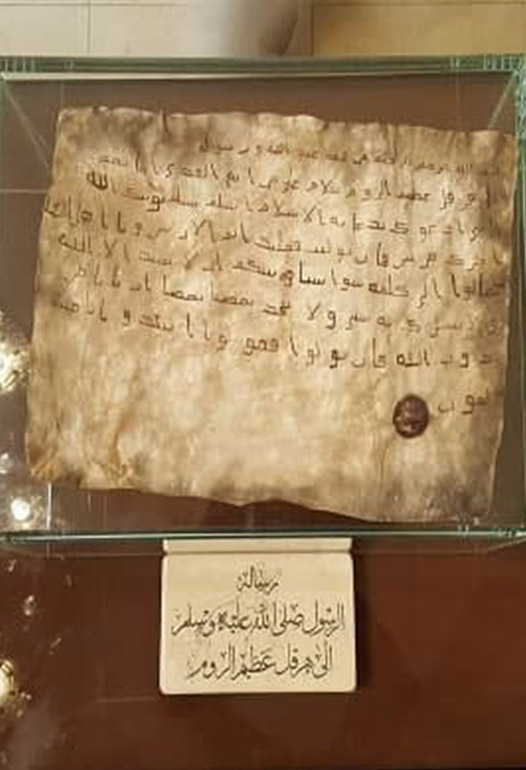 الله الرحمن الرحيم من محمد عبد الله ورسوله
الى هرقل عظيم الروم سلام على من اتبع الهدى اما بعد
ادعوك بدعاية الاسلام اسلم تسلم يوتك الله
اجرك مرتين فان توليت فعليك اثم الاريسيين ويا اهل
تعالوا الى كلمة سوا بيننا وبينكم ان لا نعبد الا الله
ولا نشرك به شيا ولا يتخذ بعضنا بعضا اربابا من
دون الله فان تولوا فقولوا اشهدوا بانا
لمون
رسالة
الرسول صلى الله عليه وسلم
الى هرقل عظيم الروم